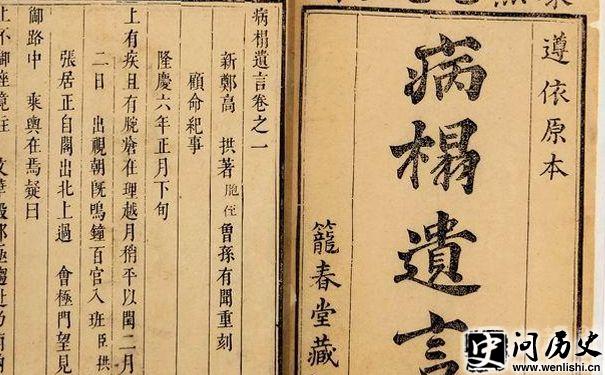 遵依原本
病榻遺言
籠春堂藏
病榻遺言卷之一
新鄭高 拱著 胞侄曾孫有聞重刻
顧命紀事
隆慶六年正月下旬
上有疾且有腕瘡在理越月稍平以閏二月
二日 出視朝既鳴鐘百官入班臣拱
張居正自閣出北上過 會極門望見
御路中 乘輿在焉疑曰
上不御座竟往 文華殿
史 问历史
www.wenlishi.cn